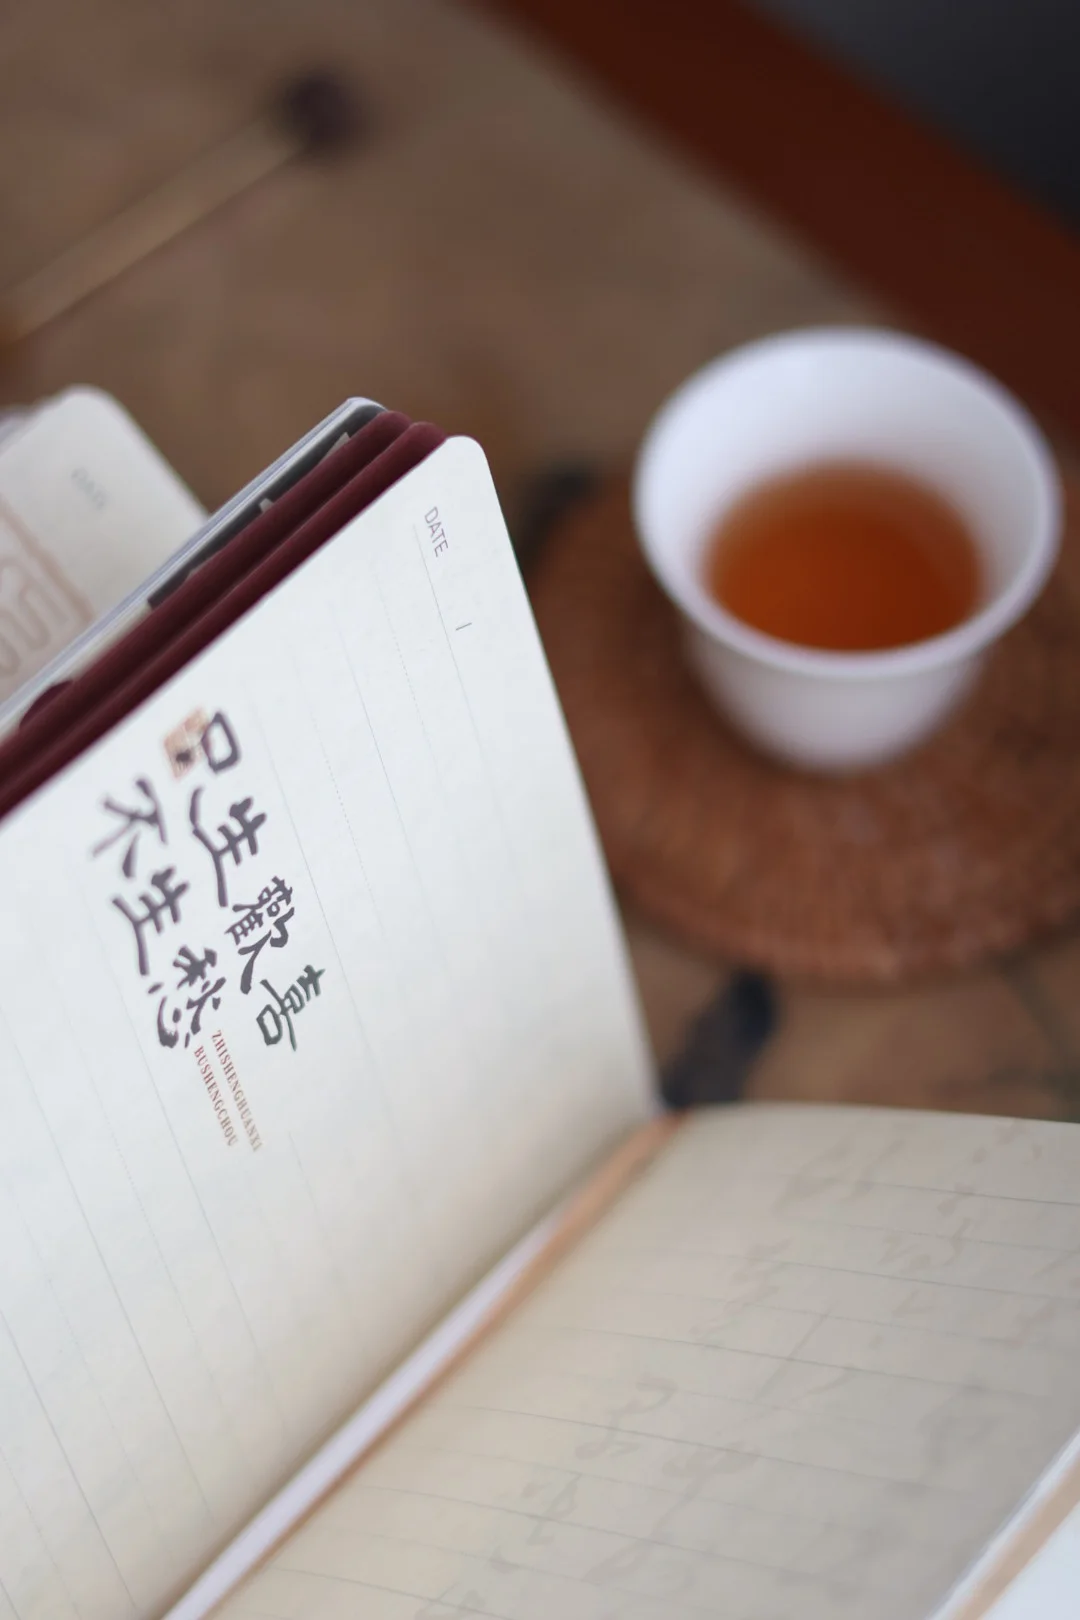 DATE
DATE
/
只生歡喜
不生愁
ZHISHENGHUANXI
BUSHENGCHOU